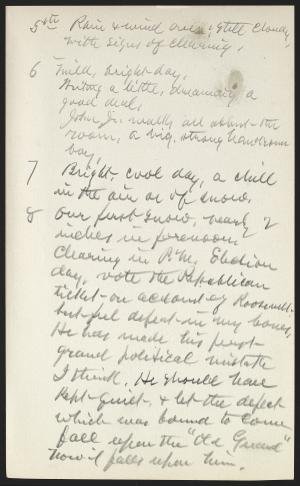 5th Rain & wind over; still cloudy,
with signs of clearing.
6 Mild, bright day,
Writing a little, dreaming a
good deal,
John Jr. walks all about the
room, a big, strong handsome
boy,
7 Bright cool day, a chill
in the air as of snow,
8 Our first snow, nearly 2
inches in forenoon,
Clearing in P.M. Election
day, vote the Republican
ticket on account of Roosevelt-
but feel defeat in my bones,
He has made his first
grand political mistake
I think, He should have
kept quiet & let the defeat
which was bound to come
fall upon the "Old Guard"
now it falls upon him.